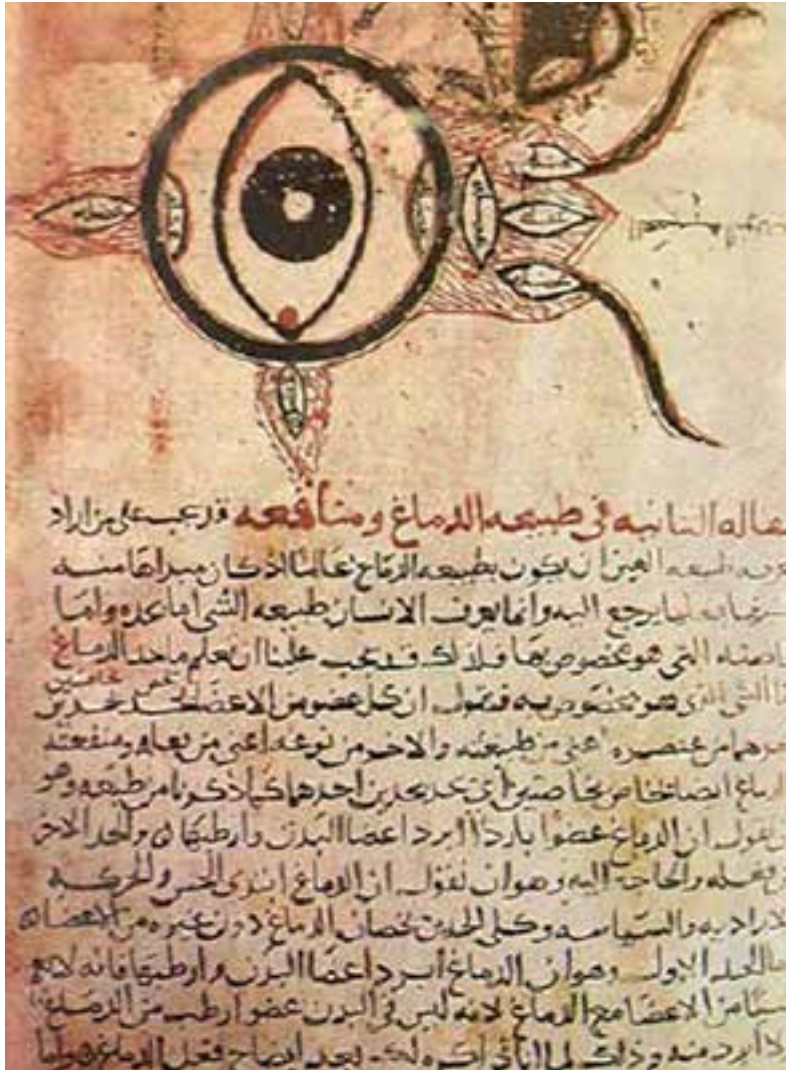 عضله
عضله
عضله
عضله
عضله
عضله
عضله
عضله
مقاله الثانيه في طبيعه الدماغ ومنافعه قد يجب على من اراد
طبيعه العين ان يكون بطبيعه الدماغ عالما اذ كان مبداها منه
اليه وانما يعرف الانسان طبيعه الشي اما بحده واما
التي هو مخصوص بها فلذلك قد يجب علينا ان نعلم ما حد الدماغ
الشي الذي هو مخصوص به فنقول ان كل عضو من الاعضا يحد بحدين
من عنصره اعني من طبيعته والاخر من نوعه اعني من فعله ومنفعته
الدماغ ايضا بحدين احدهما كما ذكرنا من طبيعه وهو
نقول ان الدماغ عضوا بارد ابرد اعضا البدن وارطبها والحد الاخر
من فعله والحاجه اليه وهو ان نقول ان الدماغ ابتدى الحس والحركه
الاراديه والسياسه وكلى الحدين يخصان الدماغ دون غيره من الاعضا
الحد الاول وهو ان الدماغ ابرد اعضا البدن وارطبها فانه
من الاعضا مع الدماغ لانه ليس في البدن عضو ارطب من الدماغ
ولا ابرد منه وذلك لما انا ذاكره لك بعد ايضاح فعل الدماغ واما